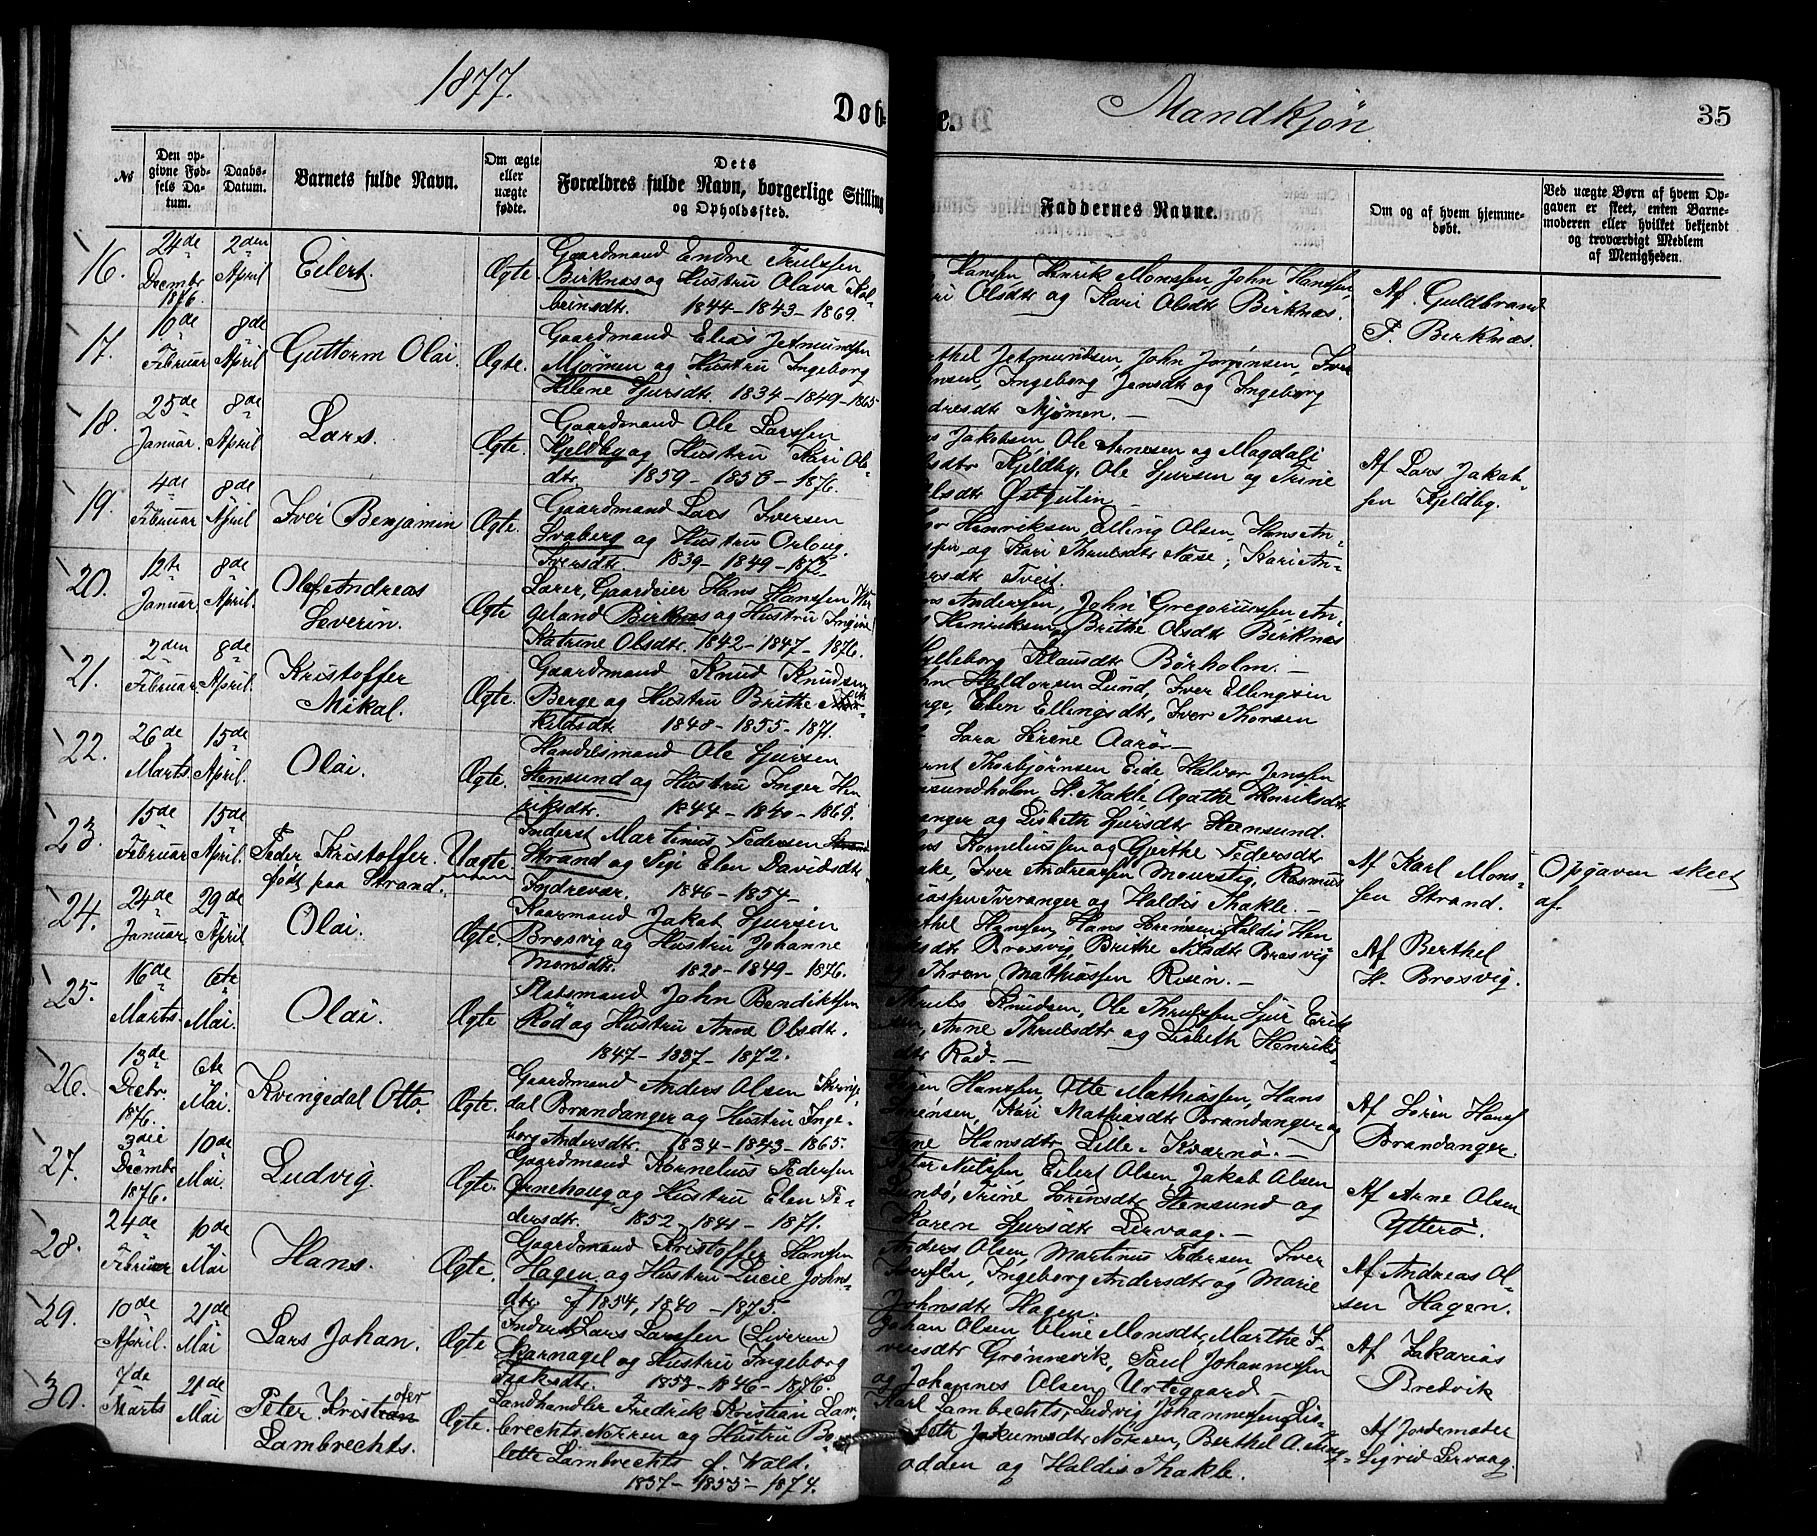 1877.
Døb-
e.
Mandkjøn
35
№
Den op-
givne Fød-
sels Da-
tum.
Daabs-
Datum.
Barnets fulde Navn.
Om ægte
eller
uægte
fødte.
Dets
Forældres fulde Navn, borgerlige Stilling
og Opholdssted.
Faddernes Navne.
Om og af hvem hjemme-
døbt.
Ved uægte Børn af hvem Op-
gaven er skeet, enten Barne-
moderen eller hvilket bekjendt
og troværdigt Medlem
af Menigheden.
16.
24de
Decembr
1876.
2den
April
Eilert.
Ægte.
Gaardmand Endre Trulssen
Birknæs og Hustru Olava Kol-
beinsdtr. 1844-1843-1869.
Hanssen, Henrik Monssen, John Hanssen,
Olsdtr og Kari Olsdtr Birknæs.
Af Guldbrand
P. Birknæs.
17.
10de
Februar
8de
April
Guttorm Olai.
Ægte.
Gaardmand Elias Jetmundsen
Mjømen og Hustru Ingeborg
Helene Sjursdtr. 1834-1849-1865
Jetmundsen, John Jørgensen, Iver
Ingeborg Jensdtr og Ingeborg
Mjømen.-
18.
25de
Januar.
8de
April
Lars.
Ægte.
Gaardmand Ole Larssen
Kjeldby og Hustru Kari Ole-
dtr. 1859-1850-1876.
Jakobsen, Ole Arnesen og Magdali
Kjeldby, Ole Sjursen og Trine
Østgulen.
Af Lars Jakob-
sen Kjeldby.
19.
4de
Februar
8de
April
Iver Benjamin
Ægte.
Gaardmand Lars Iversen
Svaberg og Hustru Orloug.
Iversdtr. 1839-1849-1872.
Henriksen, Elling Olsen, Hans An-
og Kari Thrulsdtr Næse; Kari An-
Tveit.
20.
12te
Januar
8de
April.
Olaf Andreas
Severin.
Ægte
Lærer, Gaardeier Hans Hanssen Wer
geland Birknæs og Hustru Ingine
Katrine Olsdtr. 1842-1847-1876.
Andersen, John Gregoriussen, An-
Henriksen og Brithe Olsdtr Birknæs
Sylleborg Klausdtr Børholm.-
21.
2den
Februar
8de
April.
Kristoffer
Mikal.
Ægte.
Gaardmand Knud Knudsen
Berge og Hustru Brithe
kildsdtr. 1848-1855-1871.
Haldorsen Lund, Iver Ellingsen
Elen Ellingsdtr, Iver Thorsen
Sara Sørine Aarø-
22.
26de
Marts
15de
April.
Olai.
Ægte.
Handelsmand Ole Sjursen
Hensund og Hustru Inger Hen
riksdtr. 1844-1840-1869.
Thorbjørnsen Eide, Halvor Jenssen
sundholm, H. Thakle, Agathe Henriksdtr
anger og Lisbeth Sjursdtr Hensund.
23.
15de
Februar
15de
April.
Peder Kristoffer.
født paa Strand.
Uægte
Inderst Martinus Pedersen
Strand og Pige Elen Davidsdtr
Indrevær. 1846-1854-
Korneliussen og Gjerthe Pedersdtr
Iver Andreassen Mourstig, Rasmus
Tveranger og Haldis Thakle.-
Af Karl Mons-
sen Strand.
Opgaven skeet
af
24.
24de
Januar
29de
April
Olai.
Ægte.
Kaarmand Jakob Sjursen
Brosvig og Hustru Johanne
Monsdtr. 1828-1849-1876.
Hansen, Hans Sørensen, Haldis Han
Brosvig, Brithe Nilsdtr Brosvig
Thron Mathiassen Risin.-
Af Berthel
H. Brosvig.
25.
16de
Marts.
6te
Mai.
Olai.
Ægte
Pladsmand John Bendiktsen
Rød og Hustru Anne Olsdtr.
1847-1837-1872.
Thruls Knudsen, Ole Thrulssen, Sjur Erik
sen, Anne Thrulsdtr og Lisbeth Henriks-
dtr Rød.-
26.
13de
Decbr.
1876.
6te
Mai.
Kvingedal Otto.
Ægte.
Gaardmand Anders Olsen Kvinge
dal Brandanger og Hustru Inge-
borg Andersdtr. 1834-1843-1865.
Hanssen, Otte Mathiassen, Hans
Sørensen, Kari Mathiasdtr Brandanger og
Anne Hansdtr Lille-Kværnø.-
Af Søren Hans
Brandanger.
27.
3die
Decembr
1876.
10de
Mai.
Ludvig.
Ægte.
Gaardmand Kornelius Pedersen
Ørnehoug og Hustru Elen Pe-
dersdtr. 1852-1841-1871.
Peter Nielsen, Eilert Olsen, Jakob Olsen
Lundø, Trine Sørensdtr Hensund og
Karen Sjursdtr Lervaag.-
Af Arne Olsen
Ytterø.
28.
24de
Februar
10de
Mai
Hans.
Ægte.
Gaardmand Kristoffer Hanssen
Hagen og Hustru Lucie Johns-
dtr. 1854, 1840-1875.
Anders Olsen, Martinus Pedersen, Iver
Iversen, Ingeborg Andersdtr og Marie
Johnsdtr Hagen.
Af Andreas Ol-
sen Hagen.
29.
10de
April.
21de
Mai
Lars Johan.
Ægte
Inderst Lars Larssen (Liveren)
Skarnagel og Hustru Ingeborg
Isaksdtr. 1853-1846-1876.
Johan Olsen, Oline Monsdtr, Marthe I-
versdtr Grønnevik, Paul Johannessen
og Johannes Olsen Urtegaard-
Af Zakarias
Bredvik
30.
7de
Marts
21de
Mai
Peter Kristofer
Lambrechts.
Ægte.
Landhandler Fredrik Kristian Lam-
brechts Norren og Hustru Bo
lette Lambrechts f. Wald.
1837-1855-1874.
Karl Lambrechts, Ludvig Johannessen, Lis-
beth Jakumsdtr Norren, Berthel A. Ting
odden og Haldis Thakle.
Af Jordemoder
Sigrid Lervaag.